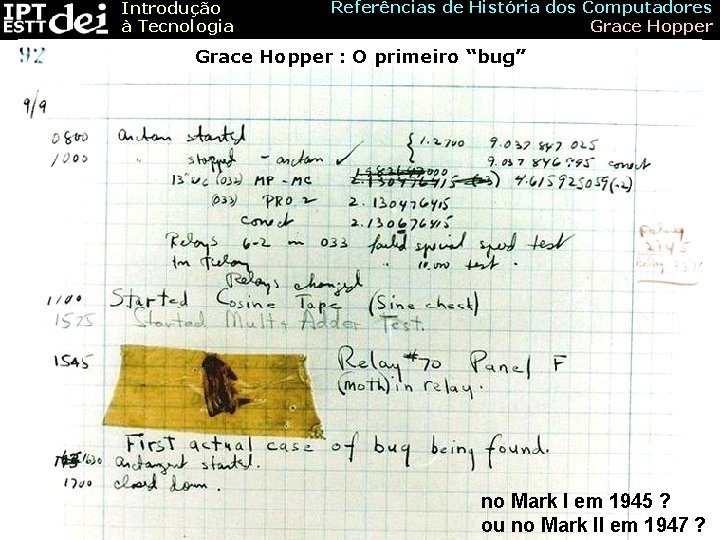 IPT
ESTT dei
Introdução
à Tecnologia
Referências de História dos Computadores
Grace Hopper
Grace Hopper : O primeiro “bug”
92
9/9
0800 Antan started
1000 " stopped - antan ✓
{ 1.2700 9.037 847 025
9.037 846 795 conect
13" uc (032) MP - MC 2.130476415 4.615925059(-2)
(033) PRO 2 2.130476415
conect 2.130676415
Relays 6-2 in 033 failed special speed test
In Relay " 10.000 test .
Relays changed
Relay
2145
Relay
1100 Started Cosine Tape (Sine check)
1525 Started Mult + Adder Test.
1545 Relay #70 Panel F
(moth) in relay.
First actual case of bug being found.
1630 antangent started.
1700 closed down .
no Mark I em 1945 ?
ou no Mark II em 1947 ?